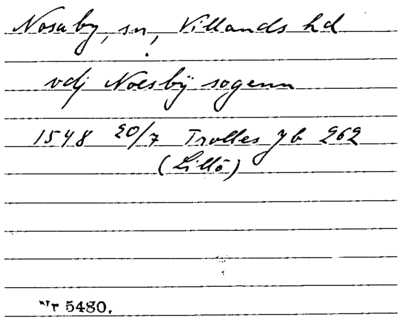 Nosaby, sn, Villands hd
vdj Noesbÿ sogenn
1548 20/7 Trolles Jb 262
(Lillö)
Nr 5480.